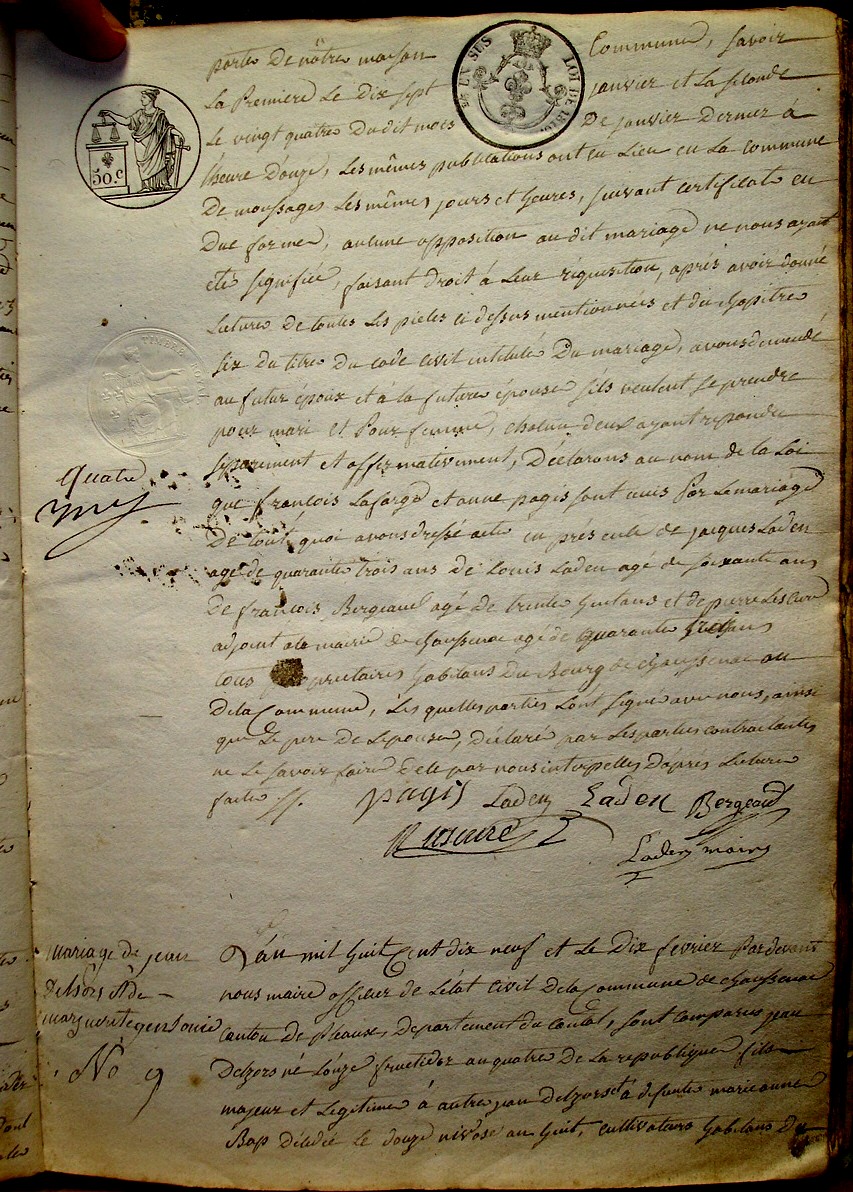 porte De nôtre maison Commune, Savoir
La Premiere Le Dix Sept janvier et La seconde
Le vingt quatre Dudit mois De janvier Dernier à
l'heure D'onze, Les mêmes publications ont eu Lieu en La commune
De moussages Les mêmes jours et heures, suivant certificat en
Due forme, aucune opposition au dit mariage ne nous ayant
été signifiée, faisant droit à Leur réquisition, après avoir donné
Lecture De toutes Les pieces ci dessus mentionnees et du chapitre
six du titre Du code Civil intitulé Du mariage, avons demandé
au futur époux et à la future épouse s'ils veulent Se prendre
pour mari et Pour femme, chacun deux ayant repondu
séparement et affirmativement, Déclarons au nom de la Loi
que françois Lafarge et anne pagis sont unis Par Le mariage
De tout quoi avons dressé acte en présence de jacques Laden
agé de quarante trois ans De Louis Laden agé de soixante ans
De francois Bergeaud agé De trente huit ans et de pierre Lescure
adjoint a la mairie de chaussenac agé de quarante ans
tous proprietaires habitans Du Bourg de chaussenac ou
De la Commune, Les quelles parties Sont signé avec nous, ainsi
que Le pere De Lepouse, Déclaré par Les parties contractantes
ne Le savoir faire De ce par nous interpelles D'après Lecture
faite
pagis Laden Laden Bergeaud
Lescure
Laden maire
TIMBRE ROYAL
EN SUS LOI DE 1816
50.c
quatre
mariage de jean
Delzors et de
marguerite gensonie
No 9
L'an mil huit Cent dix neuf et Le Dix fevrier Pardevant
nous maire officier de L'état Civil De la Commune de chaussenac
canton de Pleaux, Departement du cantal, sont comparus jean
Delzors né L'onze fructidor an quatre De La republique fils
majeur et Legitime à autre jean Delzors et à defunte marieanne
Bap Décédée Le douze nivose an huit, cultivateurs habitans Du